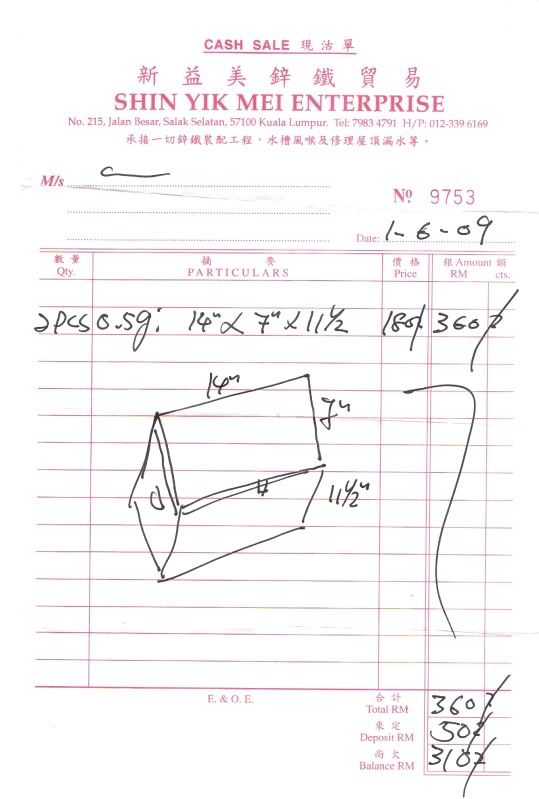 CASH SALE 現沽單
新益美鋅鐵貿易
SHIN YIK MEI ENTERPRISE
No. 215, Jalan Besar, Salak Selatan, 57100 Kuala Lumpur. Tel: 7983 4791 H/P: 012-339 6169
承接一切鋅鐵裝配工程，水槽風喉及修理屋頂漏水等。
M/s
Nº 9753
Date: 1-6-09
數量 摘要 價格 銀 Amount 額
Qty. PARTICULARS Price RM cts.
2pcs 0.5g: 14" x 7" x 11 1/2 180/ 360/
14"
7"
11 1/2"
E. & O. E.
合計
Total RM 360/
來定
Deposit RM 50/
尚欠
Balance RM 310/